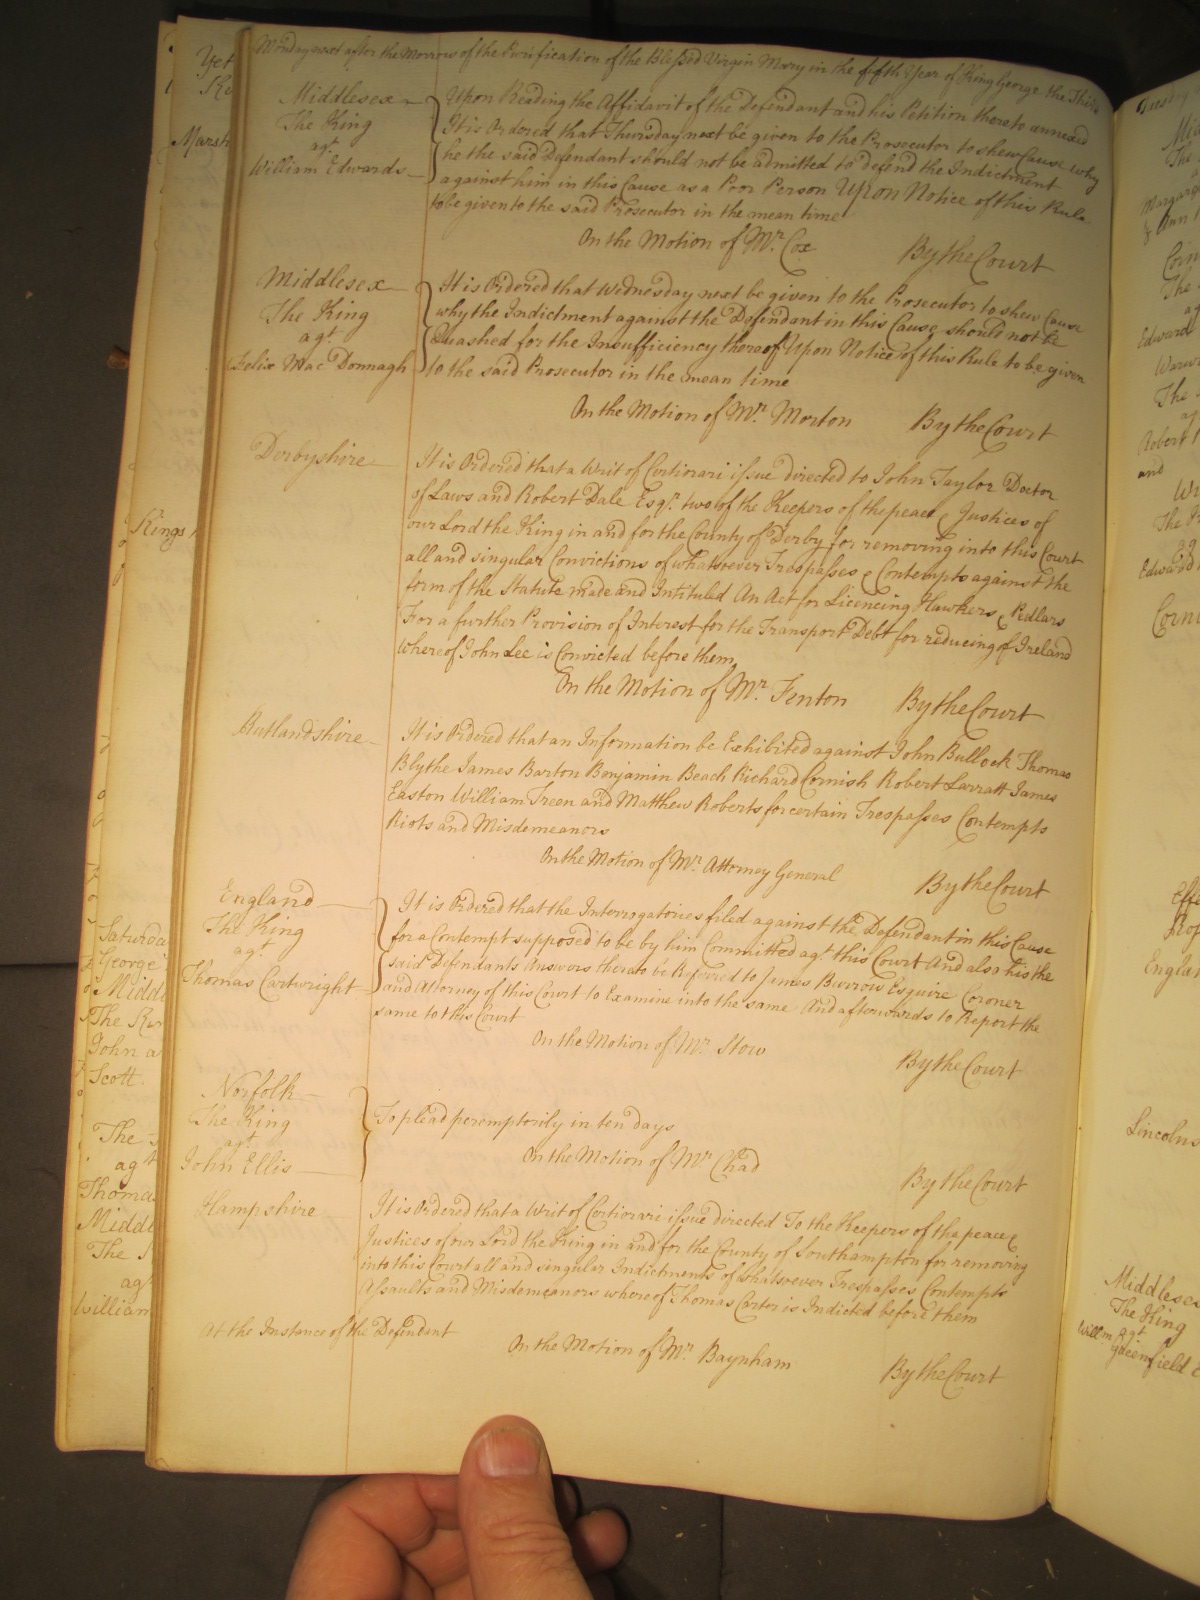 Monday next after the Morrow of the Purification of the Blessed Virgin Mary in the fifth Year of King George the Third
Middlesex
The King
agt.
William Edwards
Upon Reading the Affidavit of the Defendant and his Petition thereto annexed
It is Ordered that Thursday next be given to the Prosecutor to shew Cause why
he the said Defendant should not be admitted to defend the Indictment
against him in this Cause as a Poor Person Upon Notice of this Rule
to be given to the said Prosecutor in the mean time
On the Motion of Mr. Cox
By the Court
Middlesex
The King
agt.
Felix Mac Donnagh
It is Ordered that Wednesday next be given to the Prosecutor to shew Cause
why the Indictment against the Defendant in this Cause should not be
Quashed for the Insufficiency thereof Upon Notice of this Rule to be given
to the said Prosecutor in the mean time
On the Motion of Mr. Morton
By the Court
Derbyshire
It is Ordered that a Writ of Certiorari issue directed to John Taylor Doctor
of Laws and Robert Dale Esqr. two of the Keepers of the peace & Justices of
our Lord the King in and for the County of Derby for removing into this Court
all and singular Convictions of whatsoever Trespasses & Contempts against the
form of the Statute made and Intituled An Act for Licencing Hawkers & Pedlars
For a further Provision of Interest for the Transport Debt for reducing of Ireland
Whereof John Lee is Convicted before them
On the Motion of Mr. Fenton
By the Court
Rutlandshire
It is Ordered that an Information be Exhibited against John Bullock Thomas
Blythe James Barton Benjamin Beach Richard Cornish Robert Larratt James
Easton William Freen and Matthew Roberts for certain Trespasses Contempts
Riots and Misdemeanors
On the Motion of Mr. Attorney General
By the Court
England
The King
agt.
Thomas Cartwright
It is Ordered that the Interrogatories filed against the Defendant in this Cause
for a Contempt supposed to be by him Committed agt. this Court And also his the
said Defendants Answers thereto be Referred to James Burrow Esquire Coroner
and Attorney of this Court to Examine into the same And afterwards to Report the
same to this Court
On the Motion of Mr. Stow
By the Court
Norfolk
The King
agt.
John Ellis
To plead peremptorily in ten days
On the Motion of Mr. Chad
By the Court
Hampshire
It is Ordered that a Writ of Certiorari issue directed To the Keepers of the peace &
Justices of our Lord the King in and for the County of Southampton for removing
into this Court all and singular Indictments of whatsoever Trespasses Contempts
Assaults and Misdemeanors whereof Thomas Carter is Indicted before them
At the Instance of the Defendant
On the Motion of Mr. Baynham
By the Court
Kings
George
The
John
Scott.
The
agt
The
agt
William
Edward
The
Robert
and
Edward
Middlesex
The King
agt
Willm Greenfield